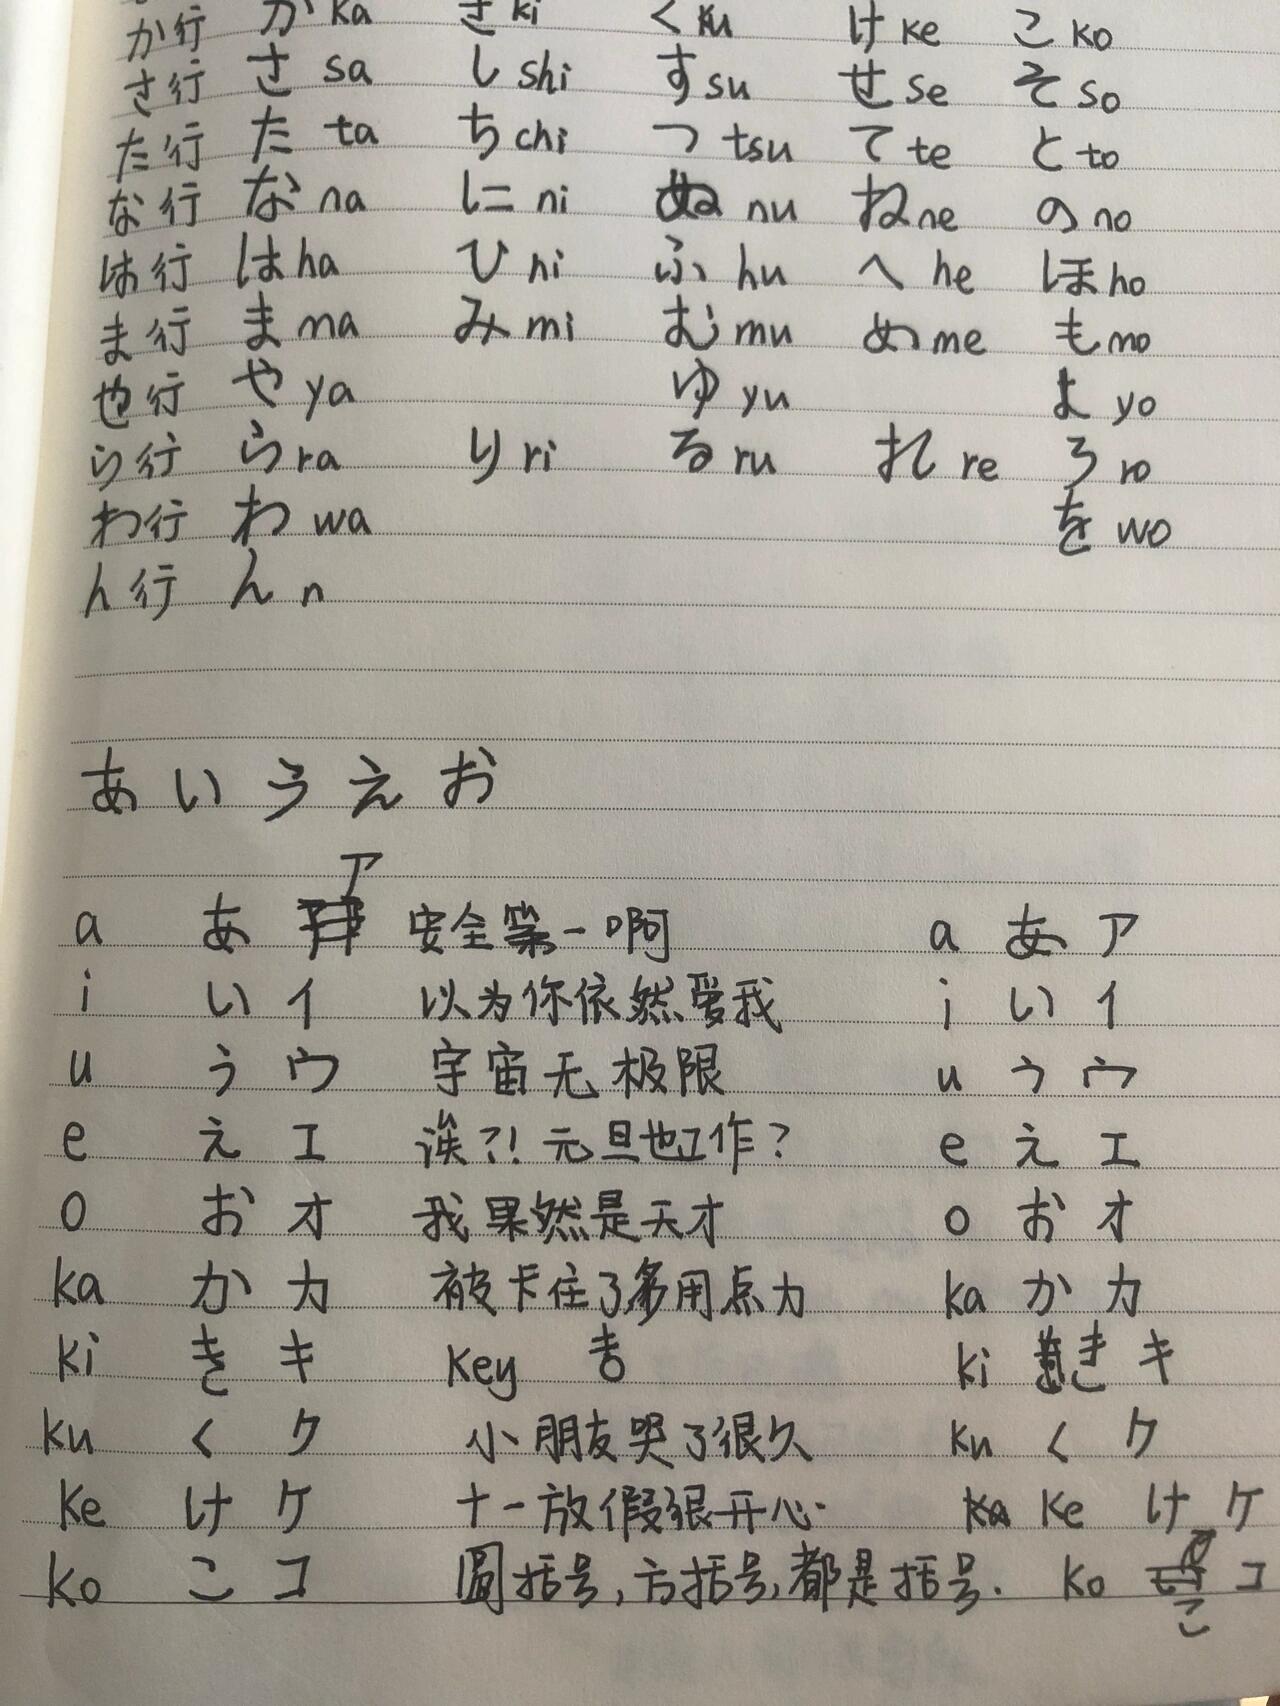 か行 か ka き ki く ku け ke こ ko
さ行 さ sa し shi す su せ se そ so
た行 た ta ち chi つ tsu て te と to
な行 な na に ni ぬ nu ね ne の no
は行 は ha ひ hi ふ hu へ he ほ ho
ま行 ま ma み mi む mu め me も mo
也行 や ya ゆ yu よ yo
ら行 ら ra り ri る ru れ re ろ ro
わ行 わ wa を wo
ん行 ん n
あ い う え お
a あ ア 安全第一啊 a あ ア
i い イ 以为你依然爱我 i い イ
u う ウ 宇宙无极限 u う ウ
e え エ 诶?! 元旦也工作? e え エ
o お オ 我果然是天才 o お オ
ka か カ 被卡住了多用点力 ka か カ
ki き キ key ki き キ
ku く ク 小朋友哭了很久 ku く ク
ke け ケ 十一放假很开心. ka ke け ケ
ko こ コ 圆括号,方括号,都是括号. ko こ コ